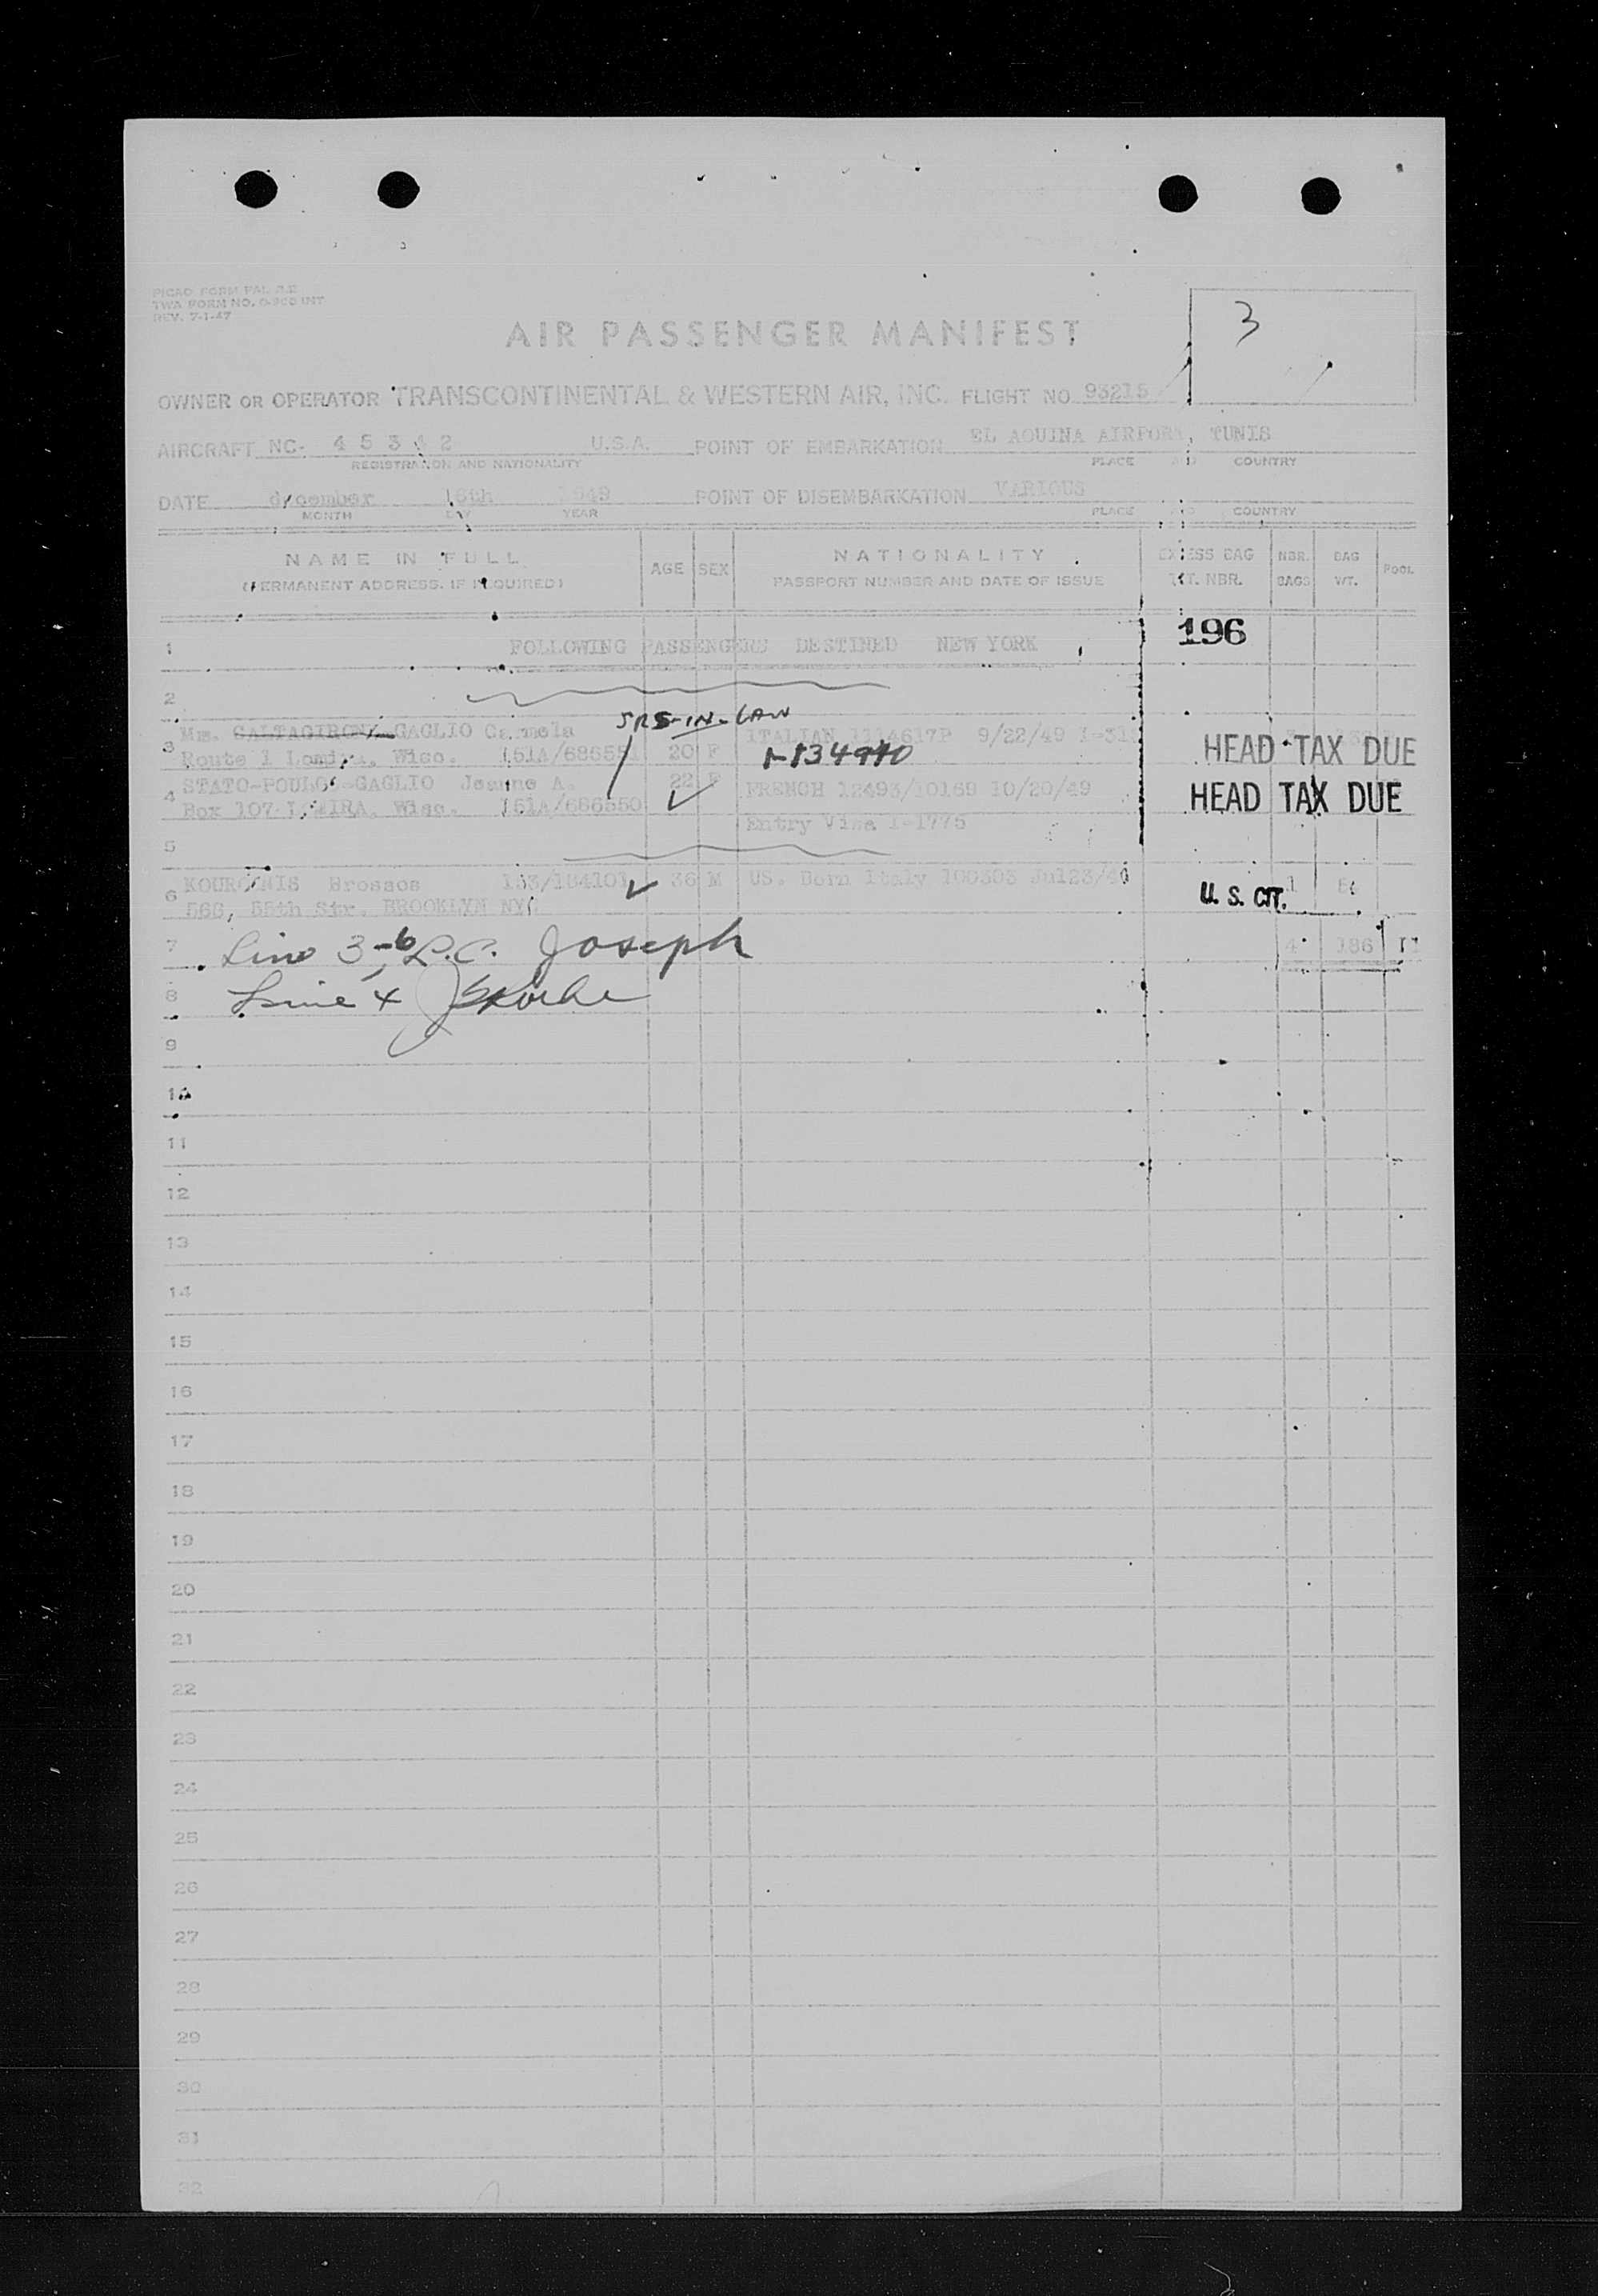 PICAO FORM PAL 2.E
TWA FORM NO. INT
REV. 7-1-47
3
AIR PASSENGER MANIFEST
OWNER OR OPERATOR TRANSCONTINENTAL & WESTERN AIR, INC. FLIGHT NO. 93215
AIRCRAFT NC- 4 5 3 4 2 U.S.A. POINT OF EMBARKATION EL AOUINA AIRPORT, TUNIS
REGISTRATION AND NATIONALITY PLACE AND COUNTRY
DATE december 16th 1949 POINT OF DISEMBARKATION VARIOUS
MONTH DAY YEAR PLACE AND COUNTRY
NAME IN FULL AGE SEX NATIONALITY EXCESS BAG NBR. BAG POOL
(PERMANENT ADDRESS, IF REQUIRED) PASSPORT NUMBER AND DATE OF ISSUE TKT. NBR. BAGS WT.
196
1 FOLLOWING PASSENGERS DESTINED NEW YORK
2
SRS-IN-LAW
3 Mrs. CALTAGIRONE-GAGLIO Carmela ITALIAN 1114617P 9/22/49
Route 1 Lomira, Wisc. 151A/686551 20 F HEAD TAX DUE
4 STATO-POULOS-GAGLIO A. 22 F FRENCH 12493/10169 10/20/49 HEAD TAX DUE
Box 107 LOMIRA, Wisc. 151A/686550
Entry Visa I-1775
5
6 KOUROUNIS Brossos 153/184101 36 M US. Born Italy 1 U. S. CIT.
566, 55th Str. BROOKLYN NY.
7 Line 3-6 Joseph 4 186
8 Line 4
9
10
11
12
13
14
15
16
17
18
19
20
21
22
23
24
25
26
27
28
29
30
31
32